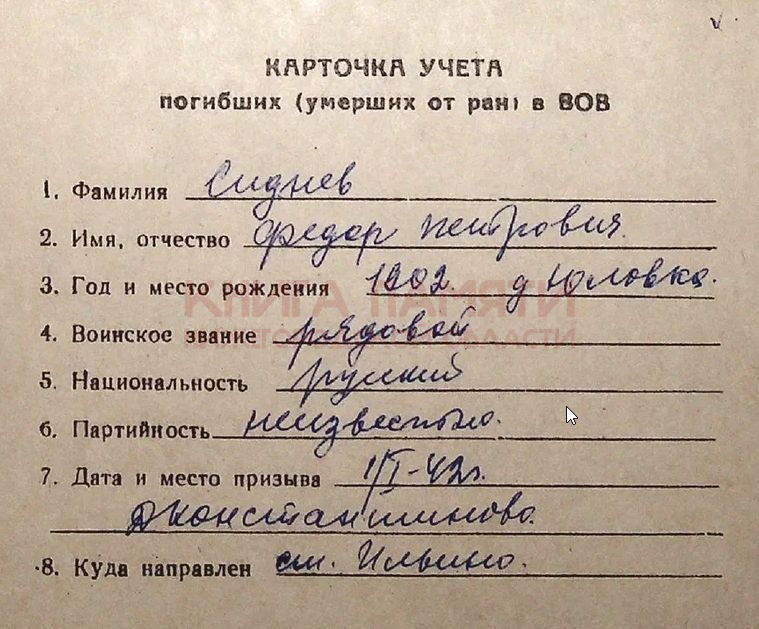 КАРТОЧКА УЧЕТА
погибших (умерших от ран) в ВОВ
1. Фамилия Сиднев
2. Имя, отчество Федор Петрович.
3. Год и место рождения 1902. д Юловка.
КНИГА ПАМЯТИ
4. Воинское звание рядовой
ОБЛАСТИ
5. Национальность русский
6. Партийность неизвестно.
7. Дата и место призыва 1/I-42г.
д Константиново.
8. Куда направлен ст. Ильино.